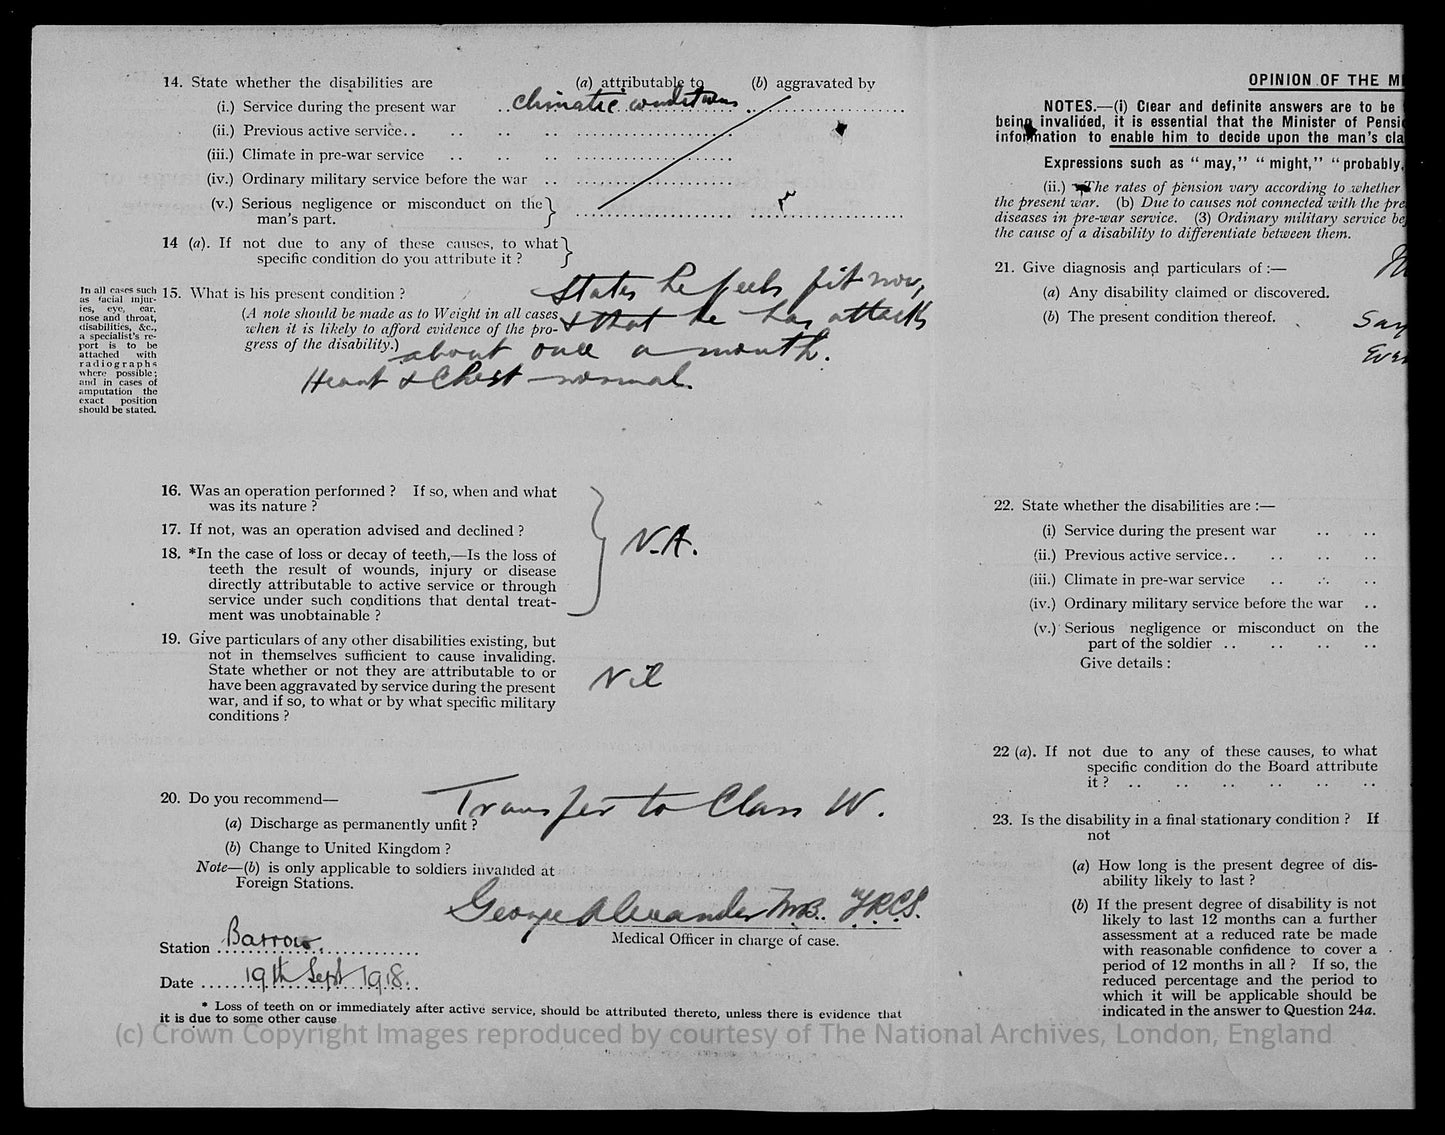 14. State whether the disabilities are (a) attributable to (b) aggravated by
(i.) Service during the present war .. climatic conditions
(ii.) Previous active service.. .. .. ..
(iii.) Climate in pre-war service .. .. ..
(iv.) Ordinary military service before the war ..
(v.) Serious negligence or misconduct on the
man's part.
14 (a). If not due to any of these causes, to what
specific condition do you attribute it ?
In all cases such
as facial injur-
ies, eye, ear,
nose and throat,
disabilities, &c.,
a specialist's re-
port is to be
attached with
radiographs
where possible;
and in cases of
amputation the
exact position
should be stated.
15. What is his present condition ?
(A note should be made as to Weight in all cases
when it is likely to afford evidence of the pro-
gress of the disability.)
States he feels fit now,
& that he has attacks
about once a month.
Heart & Chest normal.
16. Was an operation performed ? If so, when and what
was its nature ?
17. If not, was an operation advised and declined ?
18. *In the case of loss or decay of teeth,—Is the loss of
teeth the result of wounds, injury or disease
directly attributable to active service or through
service under such conditions that dental treat-
ment was unobtainable ?
N.A.
19. Give particulars of any other disabilities existing, but
not in themselves sufficient to cause invaliding.
State whether or not they are attributable to or
have been aggravated by service during the present
war, and if so, to what or by what specific military
conditions ?
Nil
20. Do you recommend—
Transfer to Class W.
(a) Discharge as permanently unfit ?
(b) Change to United Kingdom ?
Note—(b) is only applicable to soldiers invalided at
Foreign Stations.
George Alexander M.B. F.R.C.S.
Medical Officer in charge of case.
Station Barrow.
Date 19th Sept 1918.
* Loss of teeth on or immediately after active service, should be attributed thereto, unless there is evidence that
it is due to some other cause
OPINION OF THE M
NOTES.—(i) Clear and definite answers are to be
being invalided, it is essential that the Minister of Pensi
information to enable him to decide upon the man's cla
Expressions such as "may," "might," "probably,
(ii.) The rates of pension vary according to whether
the present war. (b) Due to causes not connected with the pre
diseases in pre-war service. (3) Ordinary military service be
the cause of a disability to differentiate between them.
21. Give diagnosis and particulars of :—
(a) Any disability claimed or discovered.
(b) The present condition thereof.
Say
22. State whether the disabilities are :—
(i) Service during the present war .. ..
(ii.) Previous active service.. .. .. ..
(iii.) Climate in pre-war service .. .. ..
(iv.) Ordinary military service before the war ..
(v.) Serious negligence or misconduct on the
part of the soldier .. .. .. ..
Give details :
22 (a). If not due to any of these causes, to what
specific condition do the Board attribute
it ? .. .. .. .. .. ..
23. Is the disability in a final stationary condition ? If
not
(a) How long is the present degree of dis-
ability likely to last ?
(b) If the present degree of disability is not
likely to last 12 months can a further
assessment at a reduced rate be made
with reasonable confidence to cover a
period of 12 months in all ? If so, the
reduced percentage and the period to
which it will be applicable should be
indicated in the answer to Question 24a.
(c) Crown Copyright Images reproduced by courtesy of The National Archives, London, England